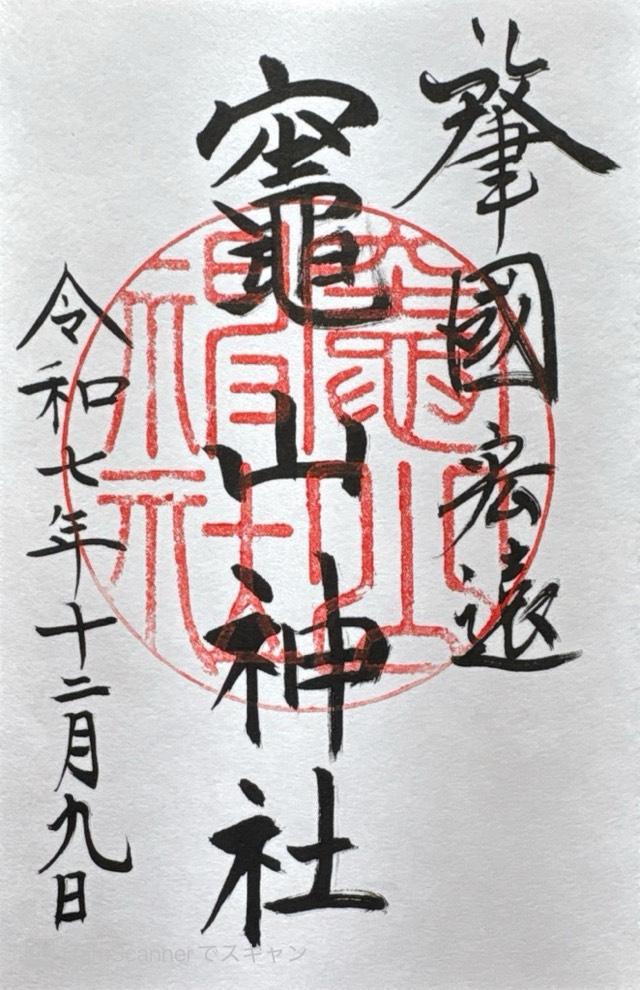 肇國宏遠
竈山神社
令和七年十二月九日
竈山
神社
Scannerでスキャン